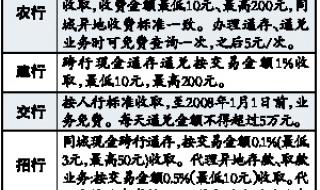 农行
收取,收费金额最低10元、最高200元,同
城异地收费标准一致。办理通存、通兑
业务时可免费查询一次,之后5元/次。
建行
跨行现金通存通兑按交易金额1%收
取,最低10元,最高200元。
交行
按人行标准收取,至2008年1月1日前,业
务免费。每天通兑金额不得超过5万元。
招行
同城现金跨行通存,按交易金额0.1%(最低
3元,最高50元)收取。代理异地存款、取款
业务:按交易金额0.5%(最低10元)收取。代